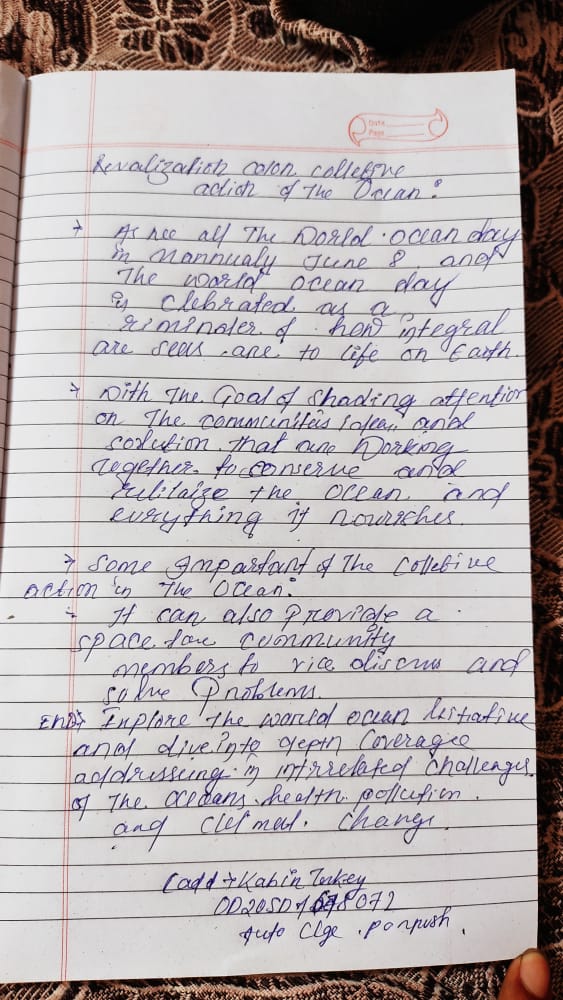 Date
Page
Revalization colon collective
action of The Ocean:
→ As we all The World. ocean day
in nannualy June 8 and
The world ocean day
is Clebrated as a
riminder of how integral
are seas are to life on Earth.
→ With The Goal of Shading attention
on The communitas idea and
solution that are Working
together to conserve and
rulitaize the ocean and
everything it nourishes.
→ Some Important of The Collective
action in The Ocean:
It can also Provide a
space for community
members to rice discuss and
solve Problems.
Inplore The world ocean Initiative
and dive into depth Coverage
addrusseing in intrrelated challenges
of The oceans health pollution
and change
Cadd → Kabin
OD20SD 8072
Auto Clge.